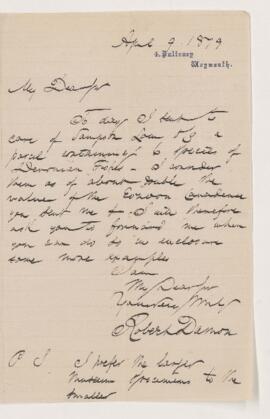 April 9 1879
4, Pulteney
Weymouth.
My Dear Sir
To day I sent to
care of Sampson Low & Co a
parcel containing 6 species of
Devonian Fishes - I consider
them as of about double the
value of the Eozoon Canadense
you sent me & I will therefore
ask you to forward me when
you can do so in enclosure
some more examples
I am
My Dear Sir
Yours very truly
Robert Damon
P. S. I prefer the larger
museum specimens to the
smaller